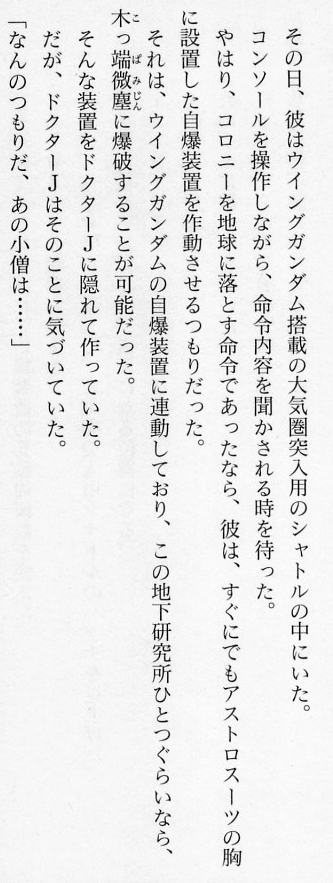 その日、彼はウイングガンダム搭載の大気圏突入用のシャトルの中にいた。
コンソールを操作しながら、命令内容を聞かされる時を待った。
やはり、コロニーを地球に落とす命令であったなら、彼は、すぐにでもアストロスーツの胸
に設置した自爆装置を作動させるつもりだった。
それは、ウイングガンダムの自爆装置に連動しており、この地下研究所ひとつぐらいなら、
木っ端微塵に爆破することが可能だった。
そんな装置をドクターJに隠れて作っていた。
だが、ドクターJはそのことに気づいていた。
「なんのつもりだ、あの小僧は……」